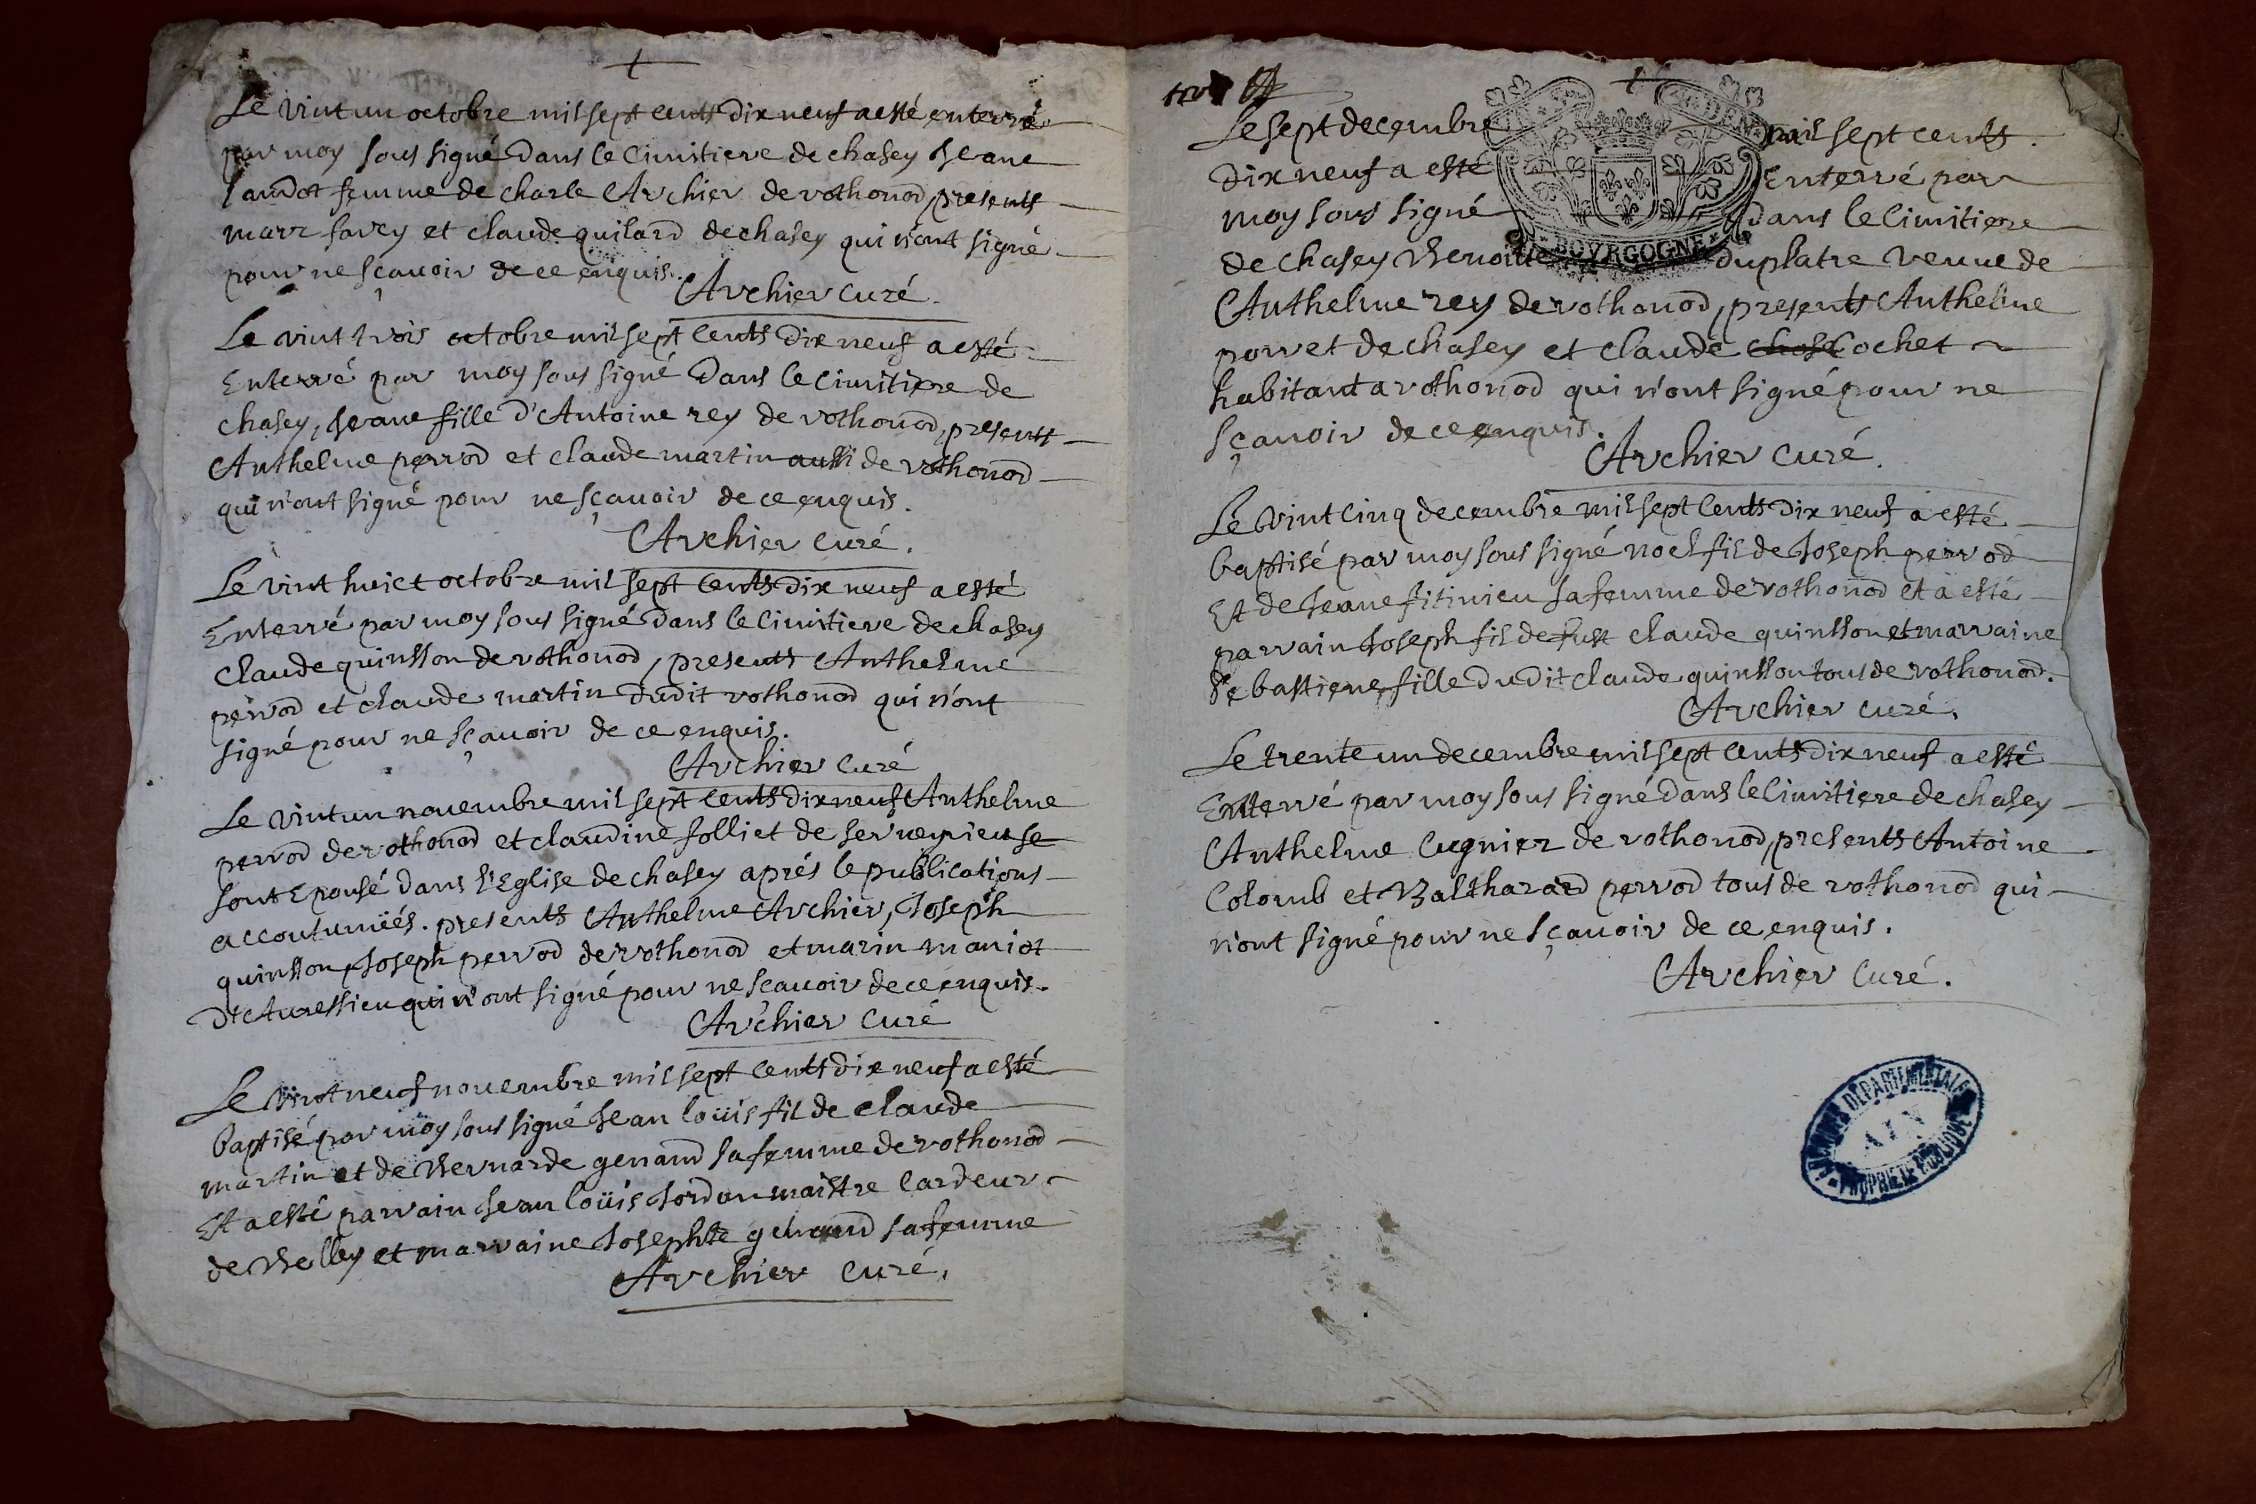 Le vint un octobre mil sept cents dix neuf a esté enterré
par moy sous signé Dans le Cimitiere de chasey Jeane
Jaudot femme de charle Archier de rothonod, presents
marc favey et claude quilard de chasey qui n'ont signé
pour ne sçavoir de ce enquis.
Archier curé.
Le vint trois octobre mil sept cents dix neuf a esté
Enterré par moy sous signé Dans le Cimitiere de
chasey, Jeane fille d'Antoine rey de rothonod, presents
Anthelme perrod et claude martin aussi de rothonod
qui n'ont signé pour ne sçavoir de ce enquis.
Archier curé.
Le vint huict octobre mil sept cents dix neuf a esté
Enterré par moy sous signé Dans le Cimitiere de chasey
Claude quinsson de rothonod, presents Anthelme
perrod et claude martin dudit rothonod qui n'ont
signé pour ne sçavoir de ce enquis.
Archier Curé
Le vint un novembre mil sept cents dix neuf Anthelme
perrod de rothonod et claudine folliet de serveyrieu se
sont Epousé dans l'Eglise de chasey aprés le publications
accoutumées. presents Anthelme Archier, Joseph
quinsson, Joseph perrod de rothonod et marin maniot
D'Auressieu qui n'ont signé pour ne scavoir de ce enquis.
Archier Curé
Le vint neuf novembre mil sept cents dix neuf a esté
baptisé par moy sous signé Jean loüis fil de claude
martin et de Bernarde genand sa femme de rothonod
Et a esté parrain Jean loüis Jordan maistre Cardeur
de Belley et marraine Josephte genand sa femme
Archier curé.
Le sept decembre mil sept cents
Dix neuf a esté Enterré par
moy sous signé dans le Cimitiere
BOVRGOGNE
de chasey Benoite duplatre veuve de
Anthelme rey de rothonod, presents Anthelme
porret de chasey et claude Cochet
habitant a rothonod qui n'ont signé pour ne
sçavoir de ce enquis.
Archier curé.
Le vint Cinq decembre mil sept Cents Dix neuf a esté
baptisé par moy sous signé noel fil de Joseph perrod
Et de Jeane fitinieu sa femme de rothonod et a esté
parrain Joseph fil de claude quinsson et marraine
Sebastiene fille dudit claude quinsson tous de rothonod.
Archier curé.
Le trente un decembre mil sept cents dix neuf a esté
Enterré par moy sous signé Dans le Cimitiere de chasey
Anthelme Cugnier de rothonod, presents Antoine
Colomb et Balthazard perrod tous de rothonod qui
n'ont signé pour ne sçavoir de ce enquis.
Archier curé.
DÉPARTEMENTALES
AIN
PROPRIÉTÉ PUBLIQUE